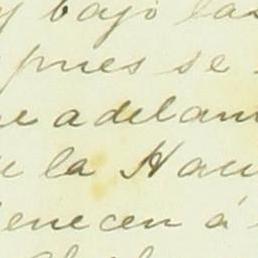 y bajo las
pues se
e adelan
la Hau
enecen á